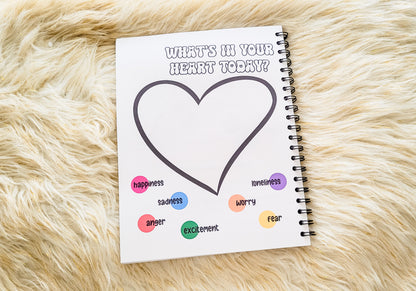 WHAT'S IN YOUR
HEART TODAY?
happiness
loneliness
sadness
worry
anger
excitement
fear